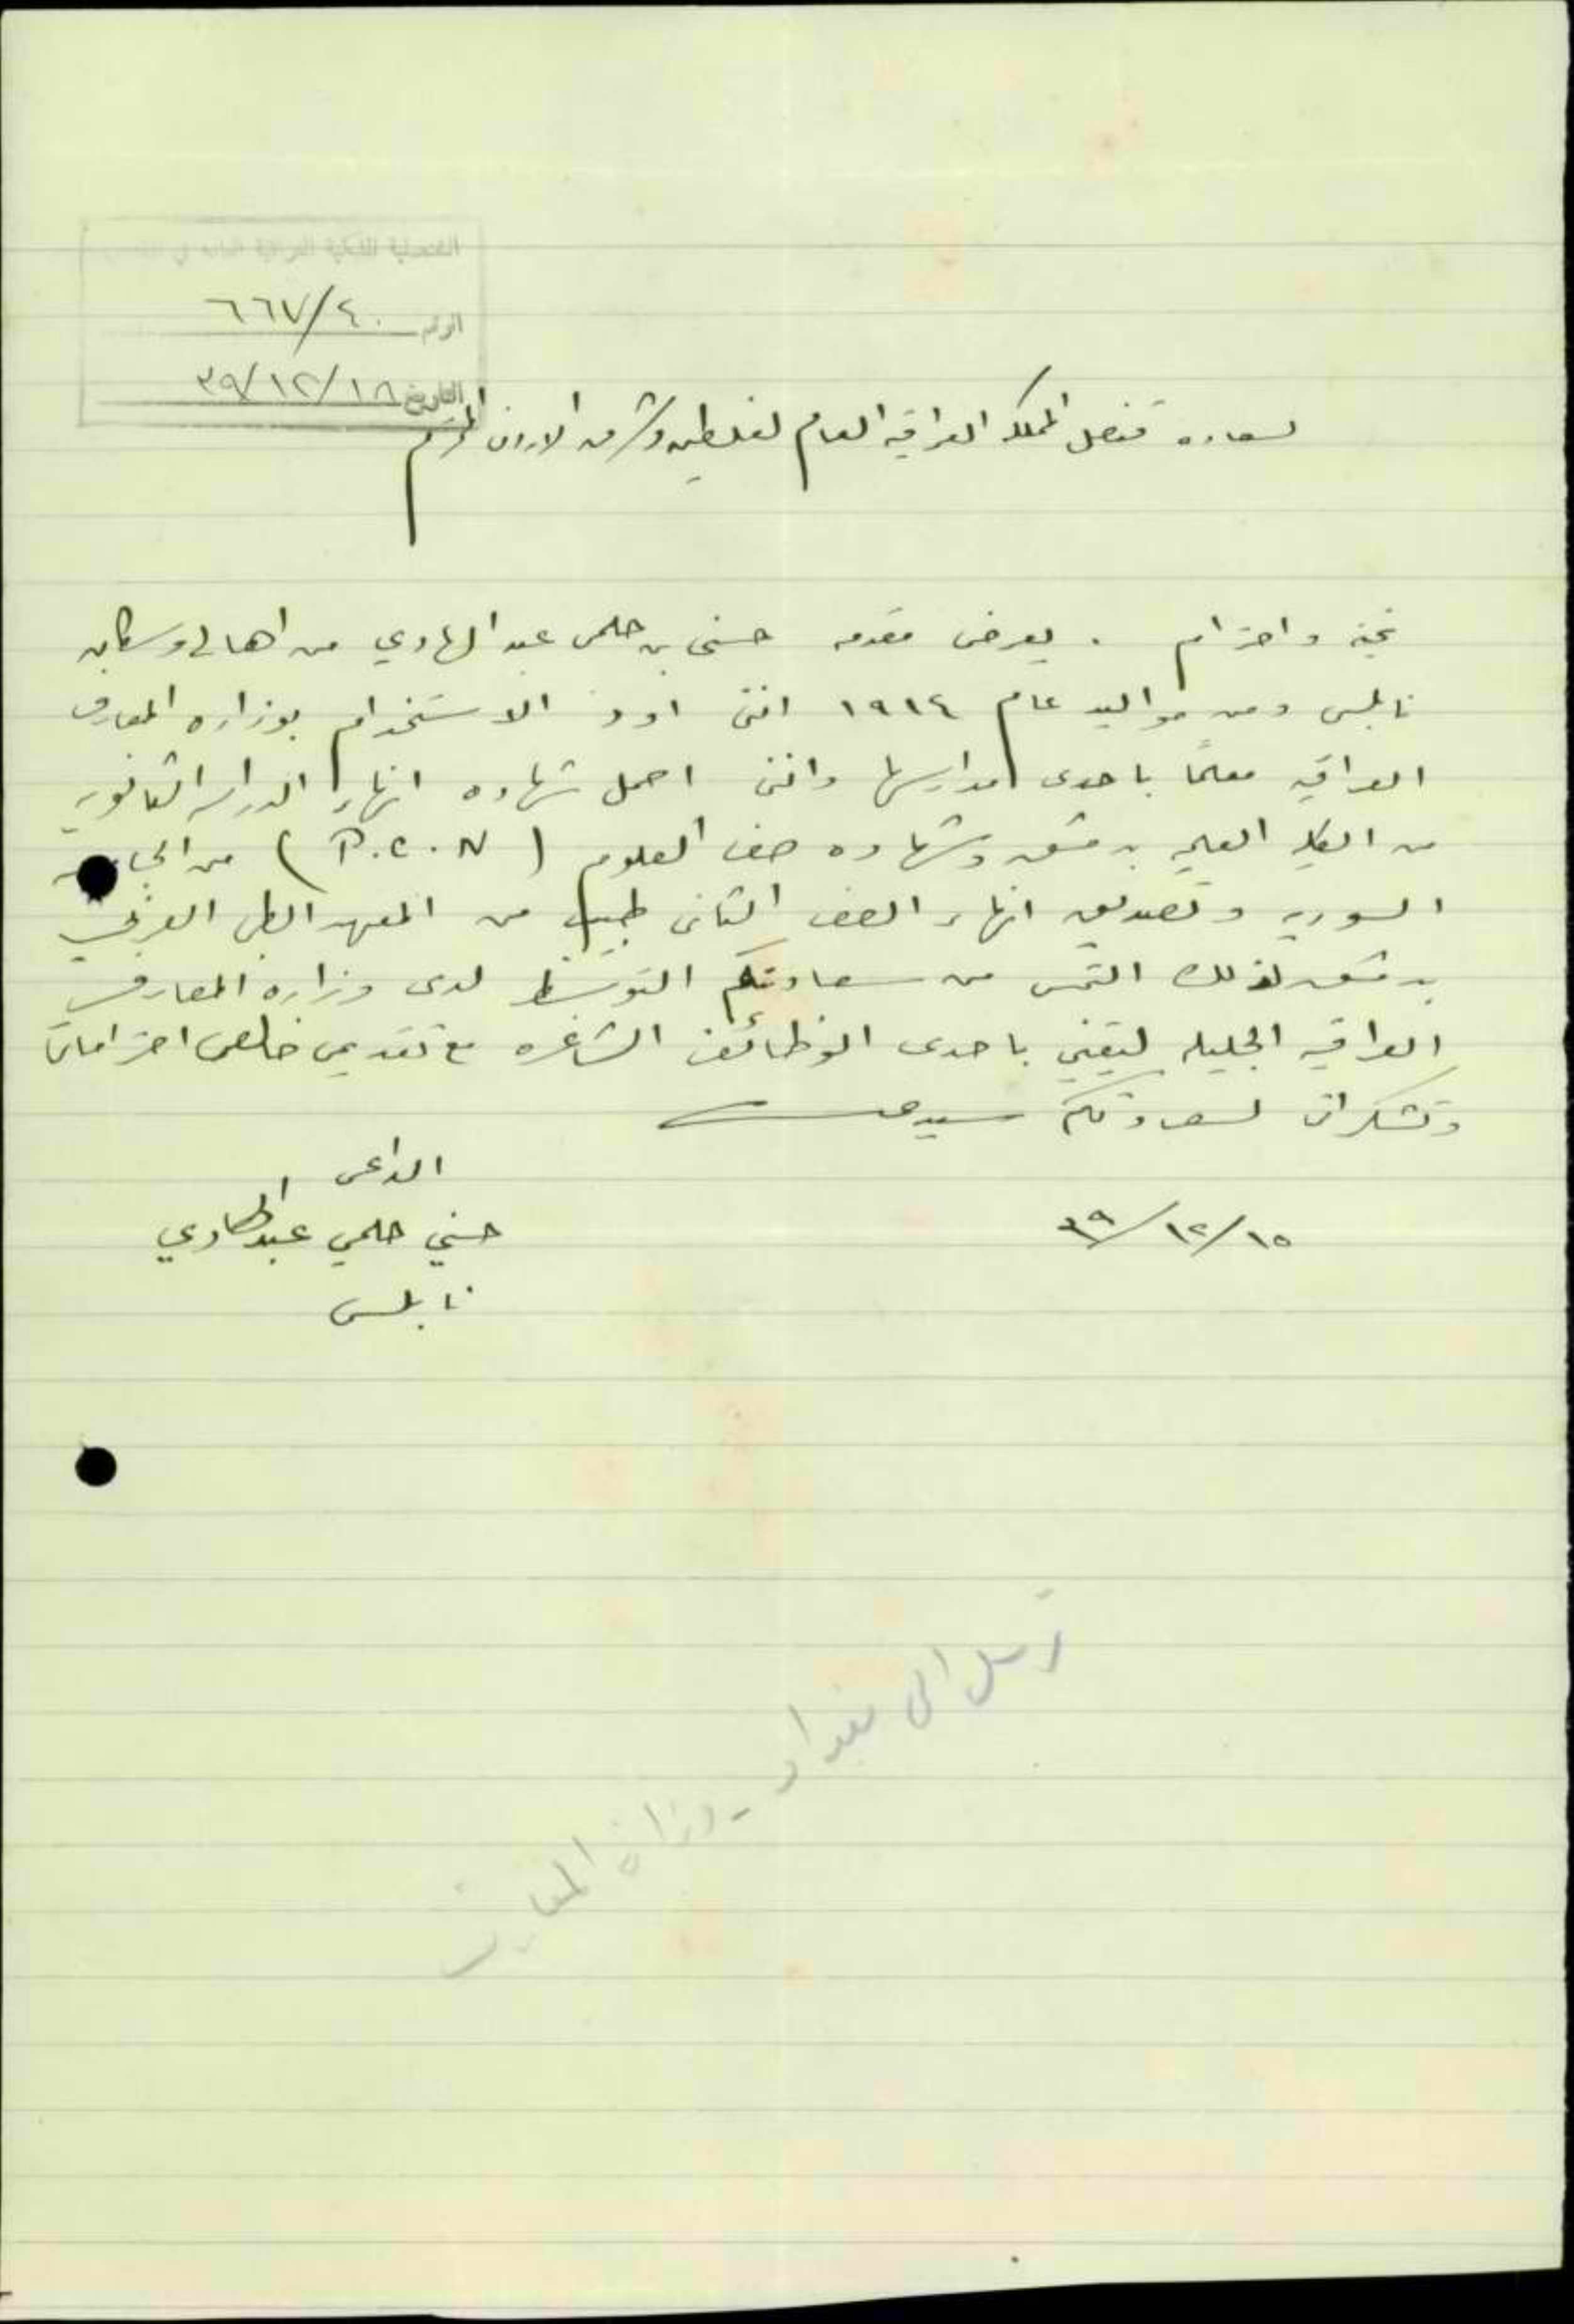 القنصلية الملكية العراقية العامة في القدس
الرقم ٦٦٧/٤٠
التاريخ ٣٩/١٢/١٨
لسعاده قنصل المملكه العراقيه العام لفلسطين وشرق الاردن المحترم
تحية واحترام . يعرض مقدمه حسني بن حلمي عبد الهادي من اهالي وسكان
نابلس ومن مواليد عام ١٩١٤ انني اود الاستخدام بوزاره المعارف
العراقيه معلمًا باحدى مدارسها وانني احمل شهاده انهاء الدراسه الثانويه
من الكليه العلميه بدمشق وشهاده صف العلوم (P.C.N) من الجامعه
السوريه وتصديق انهاء الصف الثاني طب من المعهد الطبي العربي
بدمشق لذلك التمس من سعادتكم التوسط لدى وزاره المعارف
العراقيه الجليله ليقيني باحدى الوظائف الشاغره مع تقديمي خالص احتراماتي
وتشكراتي لسعادتكم سيدي
الداعي
حسني حلمي عبد الهادي
نابلس
٣٩/١٢/١٥
ترسل الى بغداد - وزارة المعارف